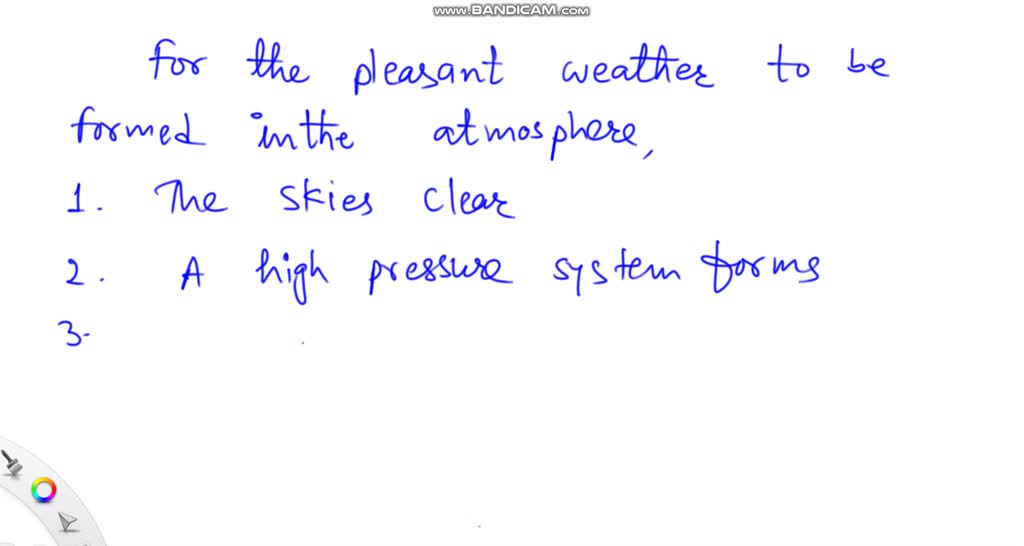 www.BANDICAM.com
for the pleasant weather to be
formed in the atmosphere,
1. The skies clear
2. A high pressure system forms
3.